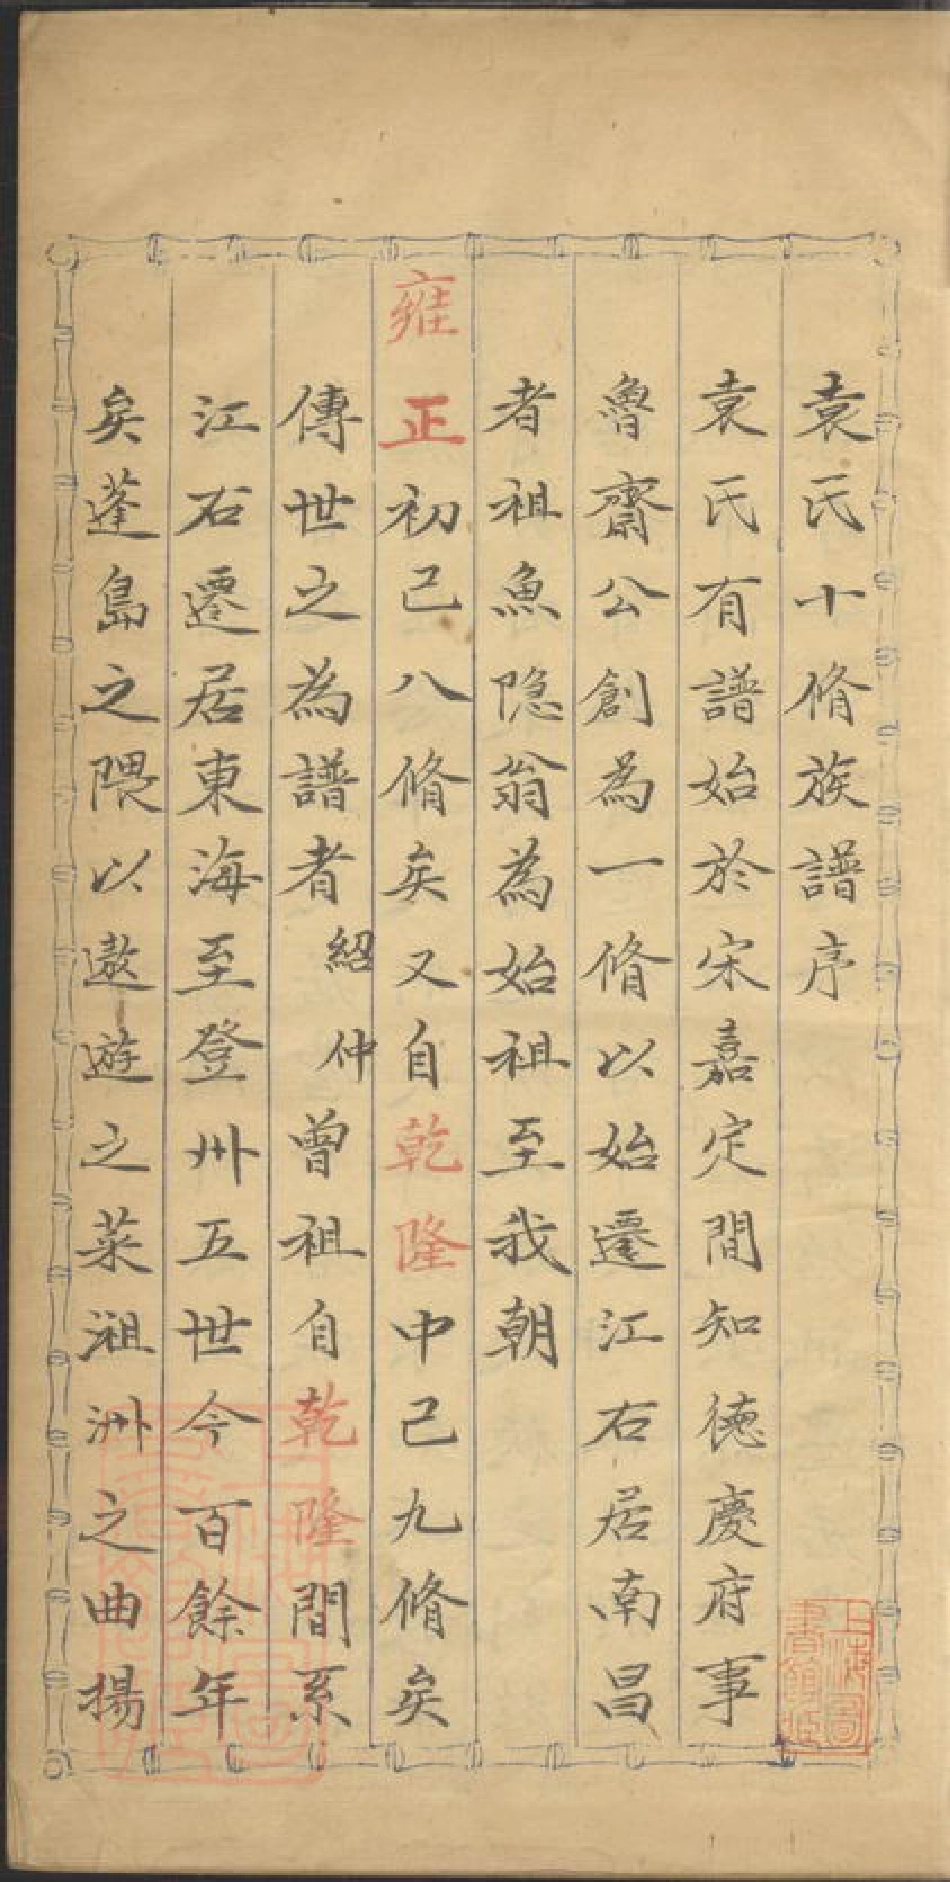 袁氏十脩族譜序
袁氏有譜始於宋嘉定間知德慶府事
魯齋公創為一脩以始遷江右居南昌
者祖魚隐翁為始祖至我朝
雍正初己八脩矣又自乾隆中己九脩矣
傳世之為譜者紹仲曾祖自乾隆間系
江右遷居東海至登州五世今百餘年
矣蓬島之隈以遨遊之萊沮洲之曲揚
上海圖書館藏